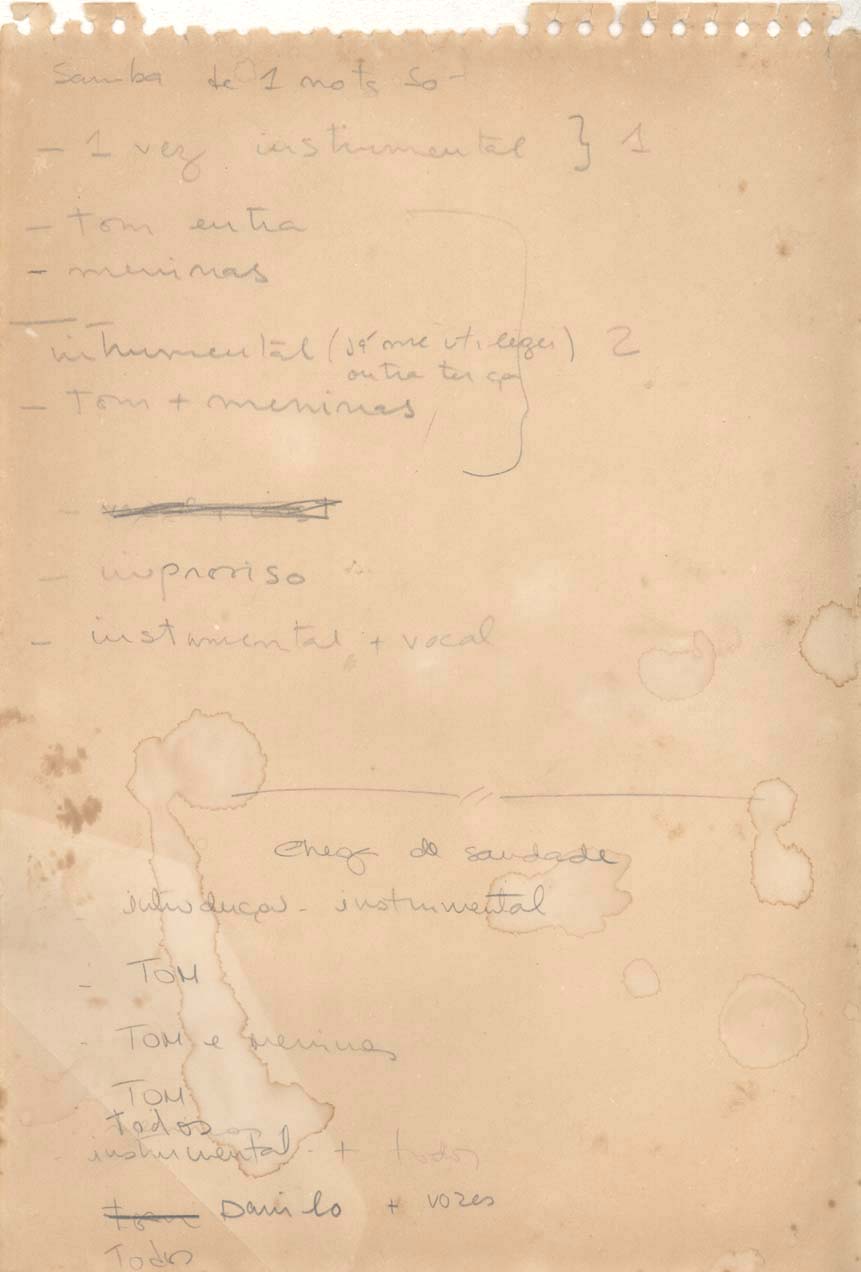 Samba de 1 nota só -
- 1 vez instrumental } 1
- Tom entra
- meninas
instrumental ( ) 2
outra
- Tom + meninas
- improviso
- instrumental + vocal
Chega de saudade
- introduçao - instrumental
- TOM
- TOM e meninas
TOM
todos
- instrumental - + todos
Danilo + vozes
Todos